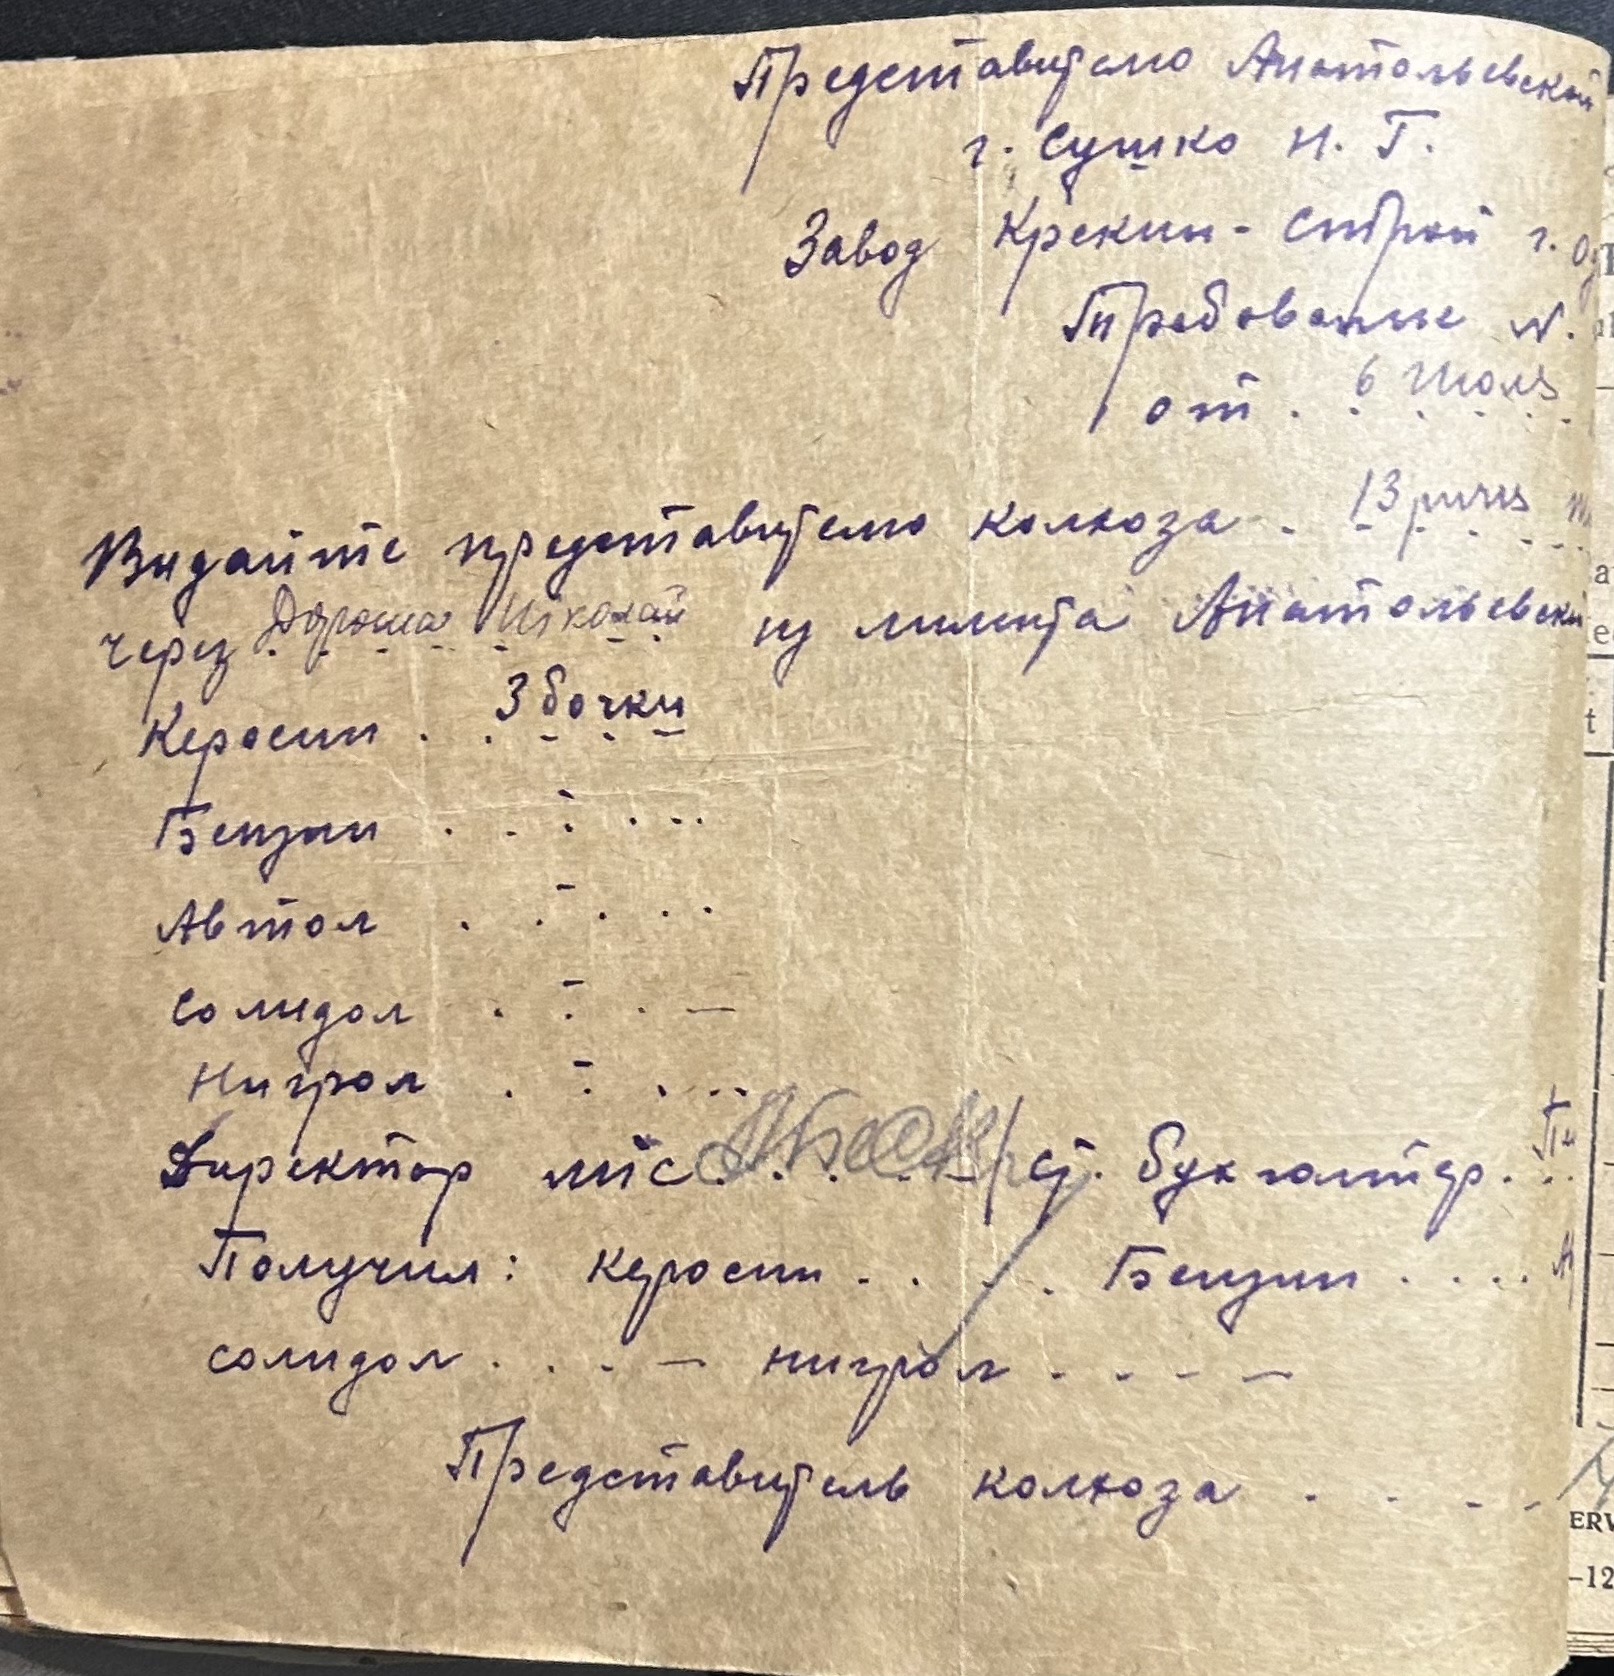 Представителю Анатольевской
г. Сушко Н. Г.
Завод Крекин-Строй г. Од
Требование N.
от . 6 Июля
Видайте представителю колхоза . 13 річчя
через Дороша Ніколай из лимита Анатольевской
Керосин . . 3 бочки
Бензин . . - . . . .
Автол . . - . . .
Солидол . - . . —
Нигрол . - . . . .
Директор мтс . . . . Ст. бухгалтер . . .
Получил: керосин . . . . Бензин . . . .
солидол . . . — нигрол . . . . —
Представитель колхоза . . . .
ERV
-12